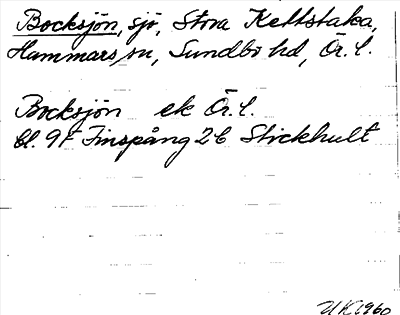 Bocksjön, sjö, Stora Kettstaka,
Hammars sn, Sundbo hd, Ör. l.
Bocksjön ek Ör. l.
bl. 9F Finspång 2b Stickhult
UK 1960